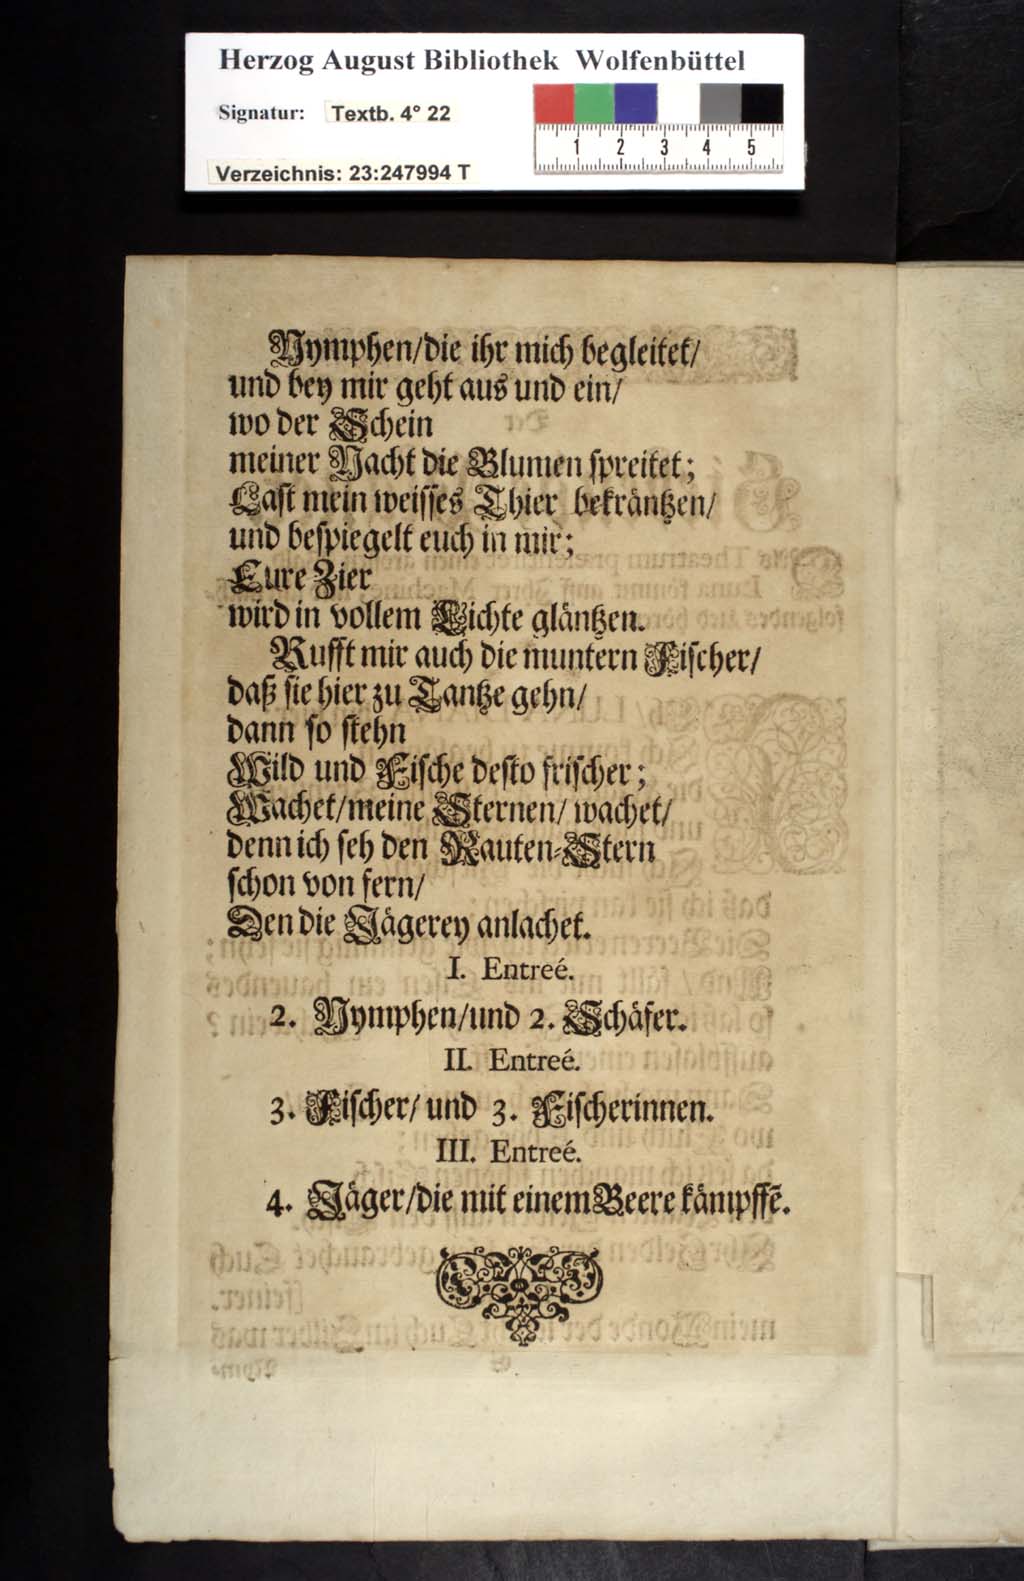 Herzog August Bibliothek Wolfenbüttel
Signatur: Textb. 4° 22
1 2 3 4 5
Verzeichnis: 23:247994 T
Nymphen/die ihr mich begleitet/
und bey mir geht aus und ein/
wo der Schein
meiner Nacht die Blumen spreitet;
Last mein weisses Thier bekräntzen/
und bespiegelt euch in mir;
Eure Zier
wird in vollem Lichte gläntzen.
Rufft mir auch die muntern Fischer/
daß sie hier zu Tantze gehn/
dann so stehn
Wild und Fische desto frischer;
Wachet/meine Sternen/ wachet/
denn ich seh den Rauten-Stern
schon von fern/
Den die Jägerey anlachet.
I. Entreé.
2. Nymphen/und 2. Schäfer.
II. Entreé.
3. Fischer/ und 3. Fischerinnen.
III. Entreé.
4. Jäger/die mit einem Beere kämpffē.